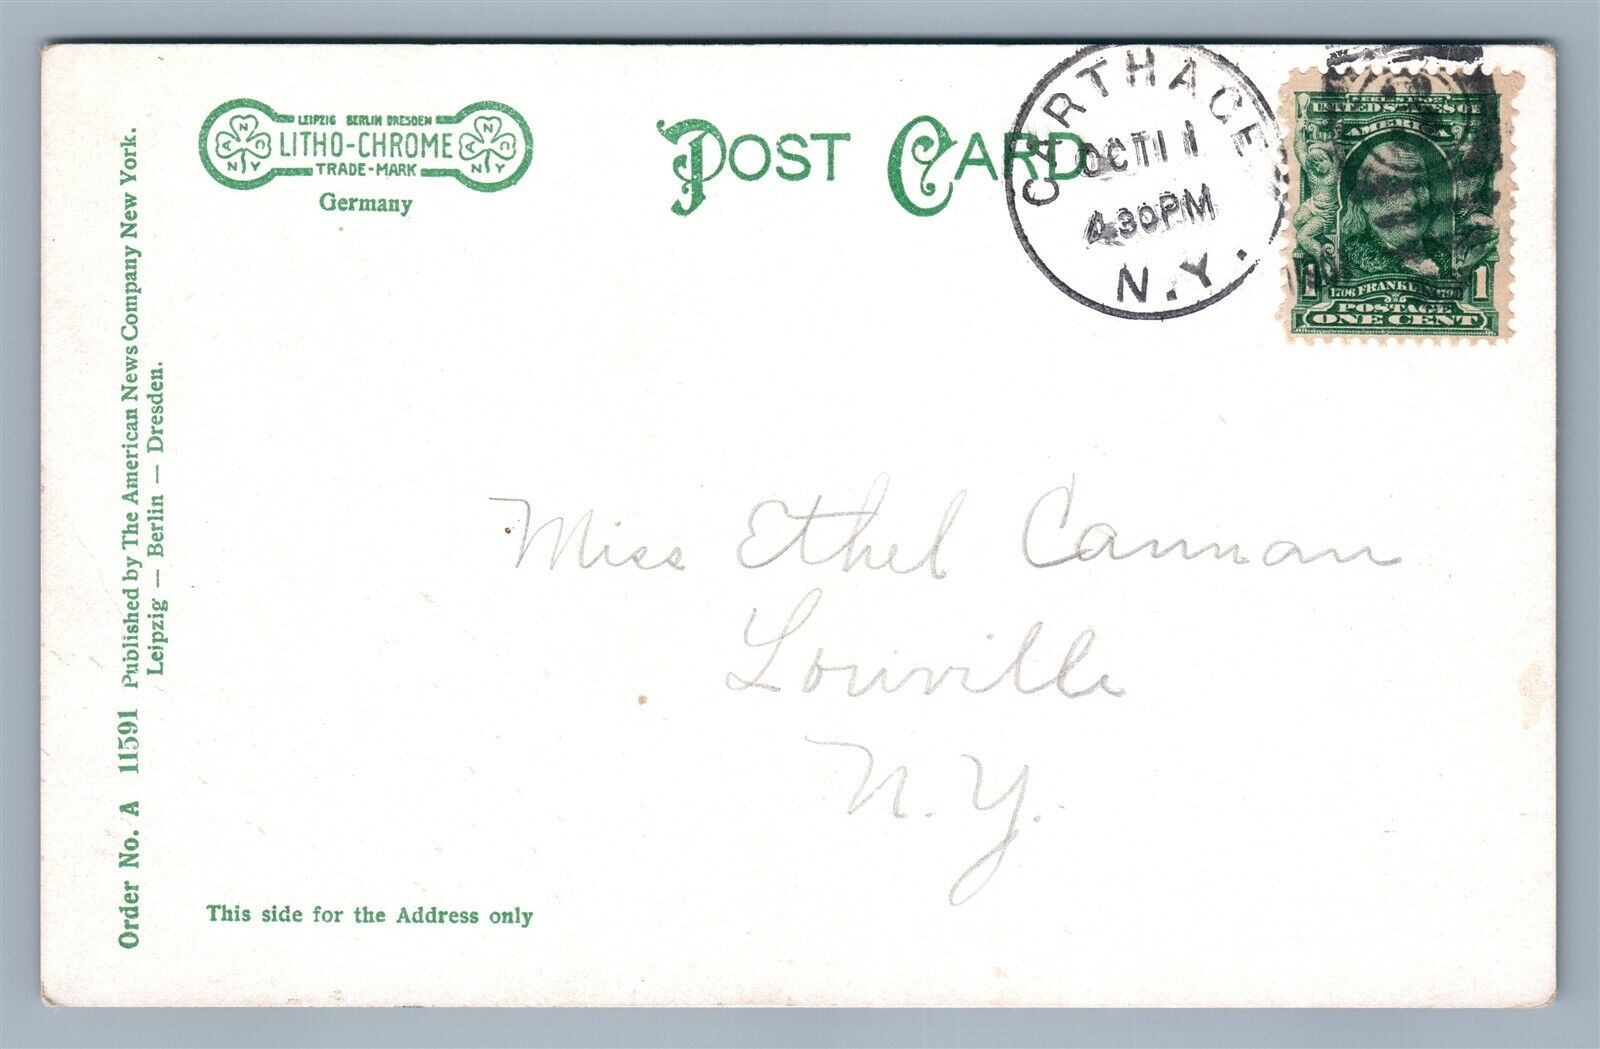 LEIPZIG BERLIN DRESDEN
LITHO-CHROME
TRADE-MARK
Germany
POST CARD
CARTHAGE
OCT 11
4 30PM
N.Y.
UNITED STATES OF
AMERICA
1 1
1706 FRANKLIN 1790
POSTAGE
ONE CENT
Miss Ethel Cannan
Louville
N. Y.
This side for the Address only
Order No. A 11591 Published by The American News Company New York.
Leipzig — Berlin — Dresden.